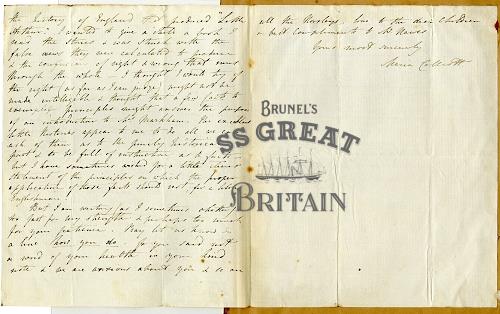 the history of England produced Little
Arthur: I wanted to give a child a book I
was the stories & was struck with the
false views they were calculated to produce
& the confusion of right & wrong that runs
through the whole — I thought I would try if
the right (as far as I can judge) might not be
made intelligible & thought that a few facts to
exemplify principles might answer the purpose
of an introduction to Mrs Markham. The
little histories appear to me to do all we can
ask of them as to the purely historical
part & to be full of instruction as to facts
but I have sometimes wished for a little
statement of the principles on which the proper
application of those facts should rest for a little
Englishman.
But I am writing as I sometimes
too fast for my strength & perhaps too much
for your patience. Pray let us know in
a line how you do, for you said not
a word of your health in your kind
note & we are anxious about you & so are
all the Horsleys, love to the dear Children
& best compliments to Mr Hawes
Yours most sincerely
Maria Callcott
BRUNEL'S
SS GREAT
BRITAIN